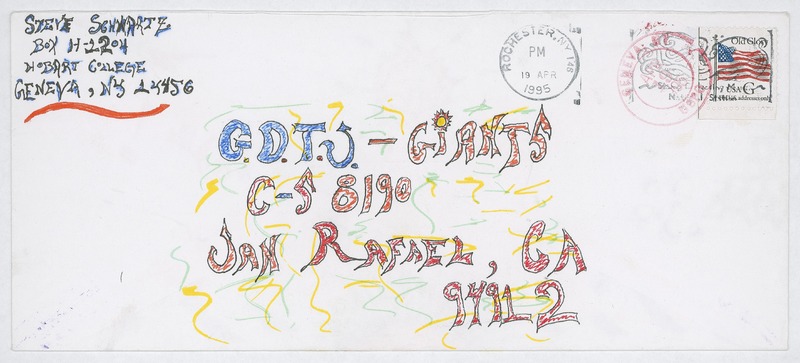 STEVE SCHWARTZ
BOX H-2204
HOBART COLLEGE
GENEVA, NY 14456
ROCHESTER, NY 145
PM
19 APR
1995
Old Glory
USA G
G.D.T.S. - GIANTS
C-S 8190
SAN RAFAEL, CA
94912